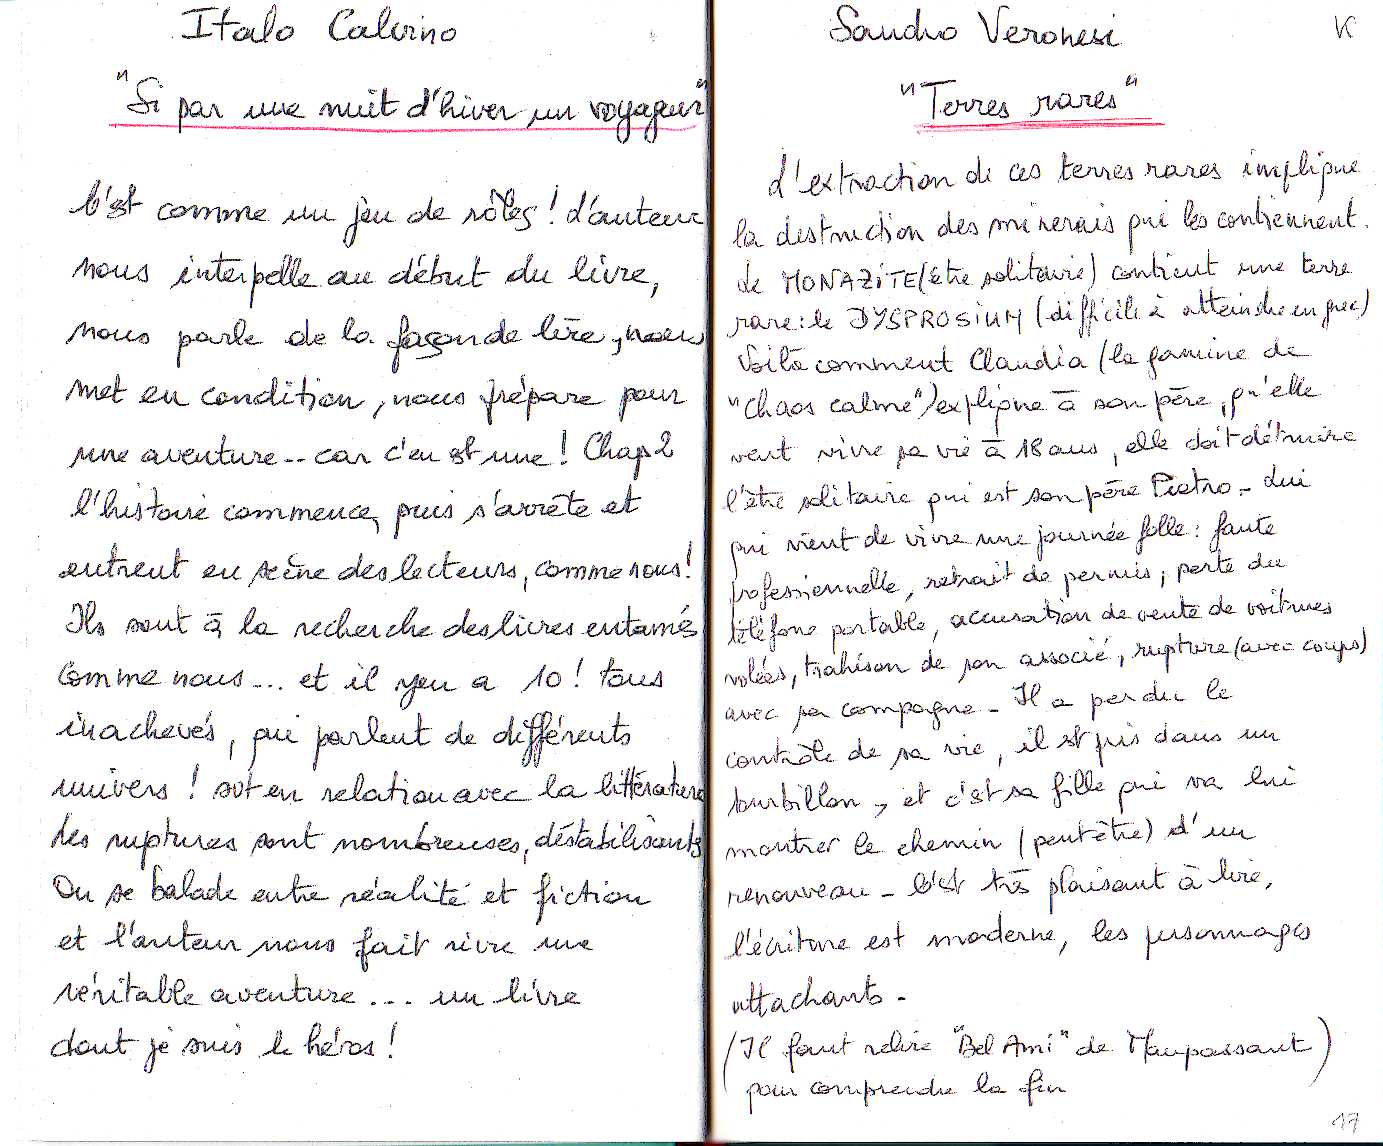 Italo Calvino
"Si par une nuit d'hiver un voyageur"
C'est comme un jeu de rôles ! L'auteur
nous interpelle au début du livre,
nous parle de la façon de lire, nous
met en condition, nous prépare pour
une aventure.. car c'en est une ! Chap 2
l'histoire commence, puis s'arrête et
entrent en scène des lecteurs, comme nous !
Ils sont à la recherche des livres entamés
comme nous... et il y en a 10 ! tous
inachevés, qui parlent de différents
univers ! sont en relation avec la littérature
Les ruptures sont nombreuses, déstabilisants
On se balade entre réalité et fiction
et l'auteur nous fait vivre une
véritable aventure... un livre
dont je suis le héros !
Sandro Veronesi
K
"Terres rares"
L'extraction de ces terres rares implique
la destruction des minerais qui les contiennent.
Le MONAZiTE (être solitaire) contient une terre
rare : le DYSPROSiUM (difficile à atteindre en grec)
Voilà comment Claudia (la gamine de
"Chaos calme") explique à son père, qu'elle
veut vivre sa vie à 18 ans, elle doit détruire
l'être solitaire qui est son père Pietro - Lui
qui vient de vivre une journée folle : faute
professionnelle, retrait de permis, perte du
téléfone portable, accusation de vente de voitures
volées, trahison de son associé, rupture (avec coups)
avec sa compagne - Il a perdu le
contrôle de sa vie, il est pris dans un
tourbillon, et c'est sa fille qui va lui
montrer le chemin (peut-être) d'un
renouveau - C'est très plaisant à lire,
l'écriture est moderne, les personnages
attachants -
(Il faut relire "Bel Ami" de Maupassant)
pour comprendre la fin
17